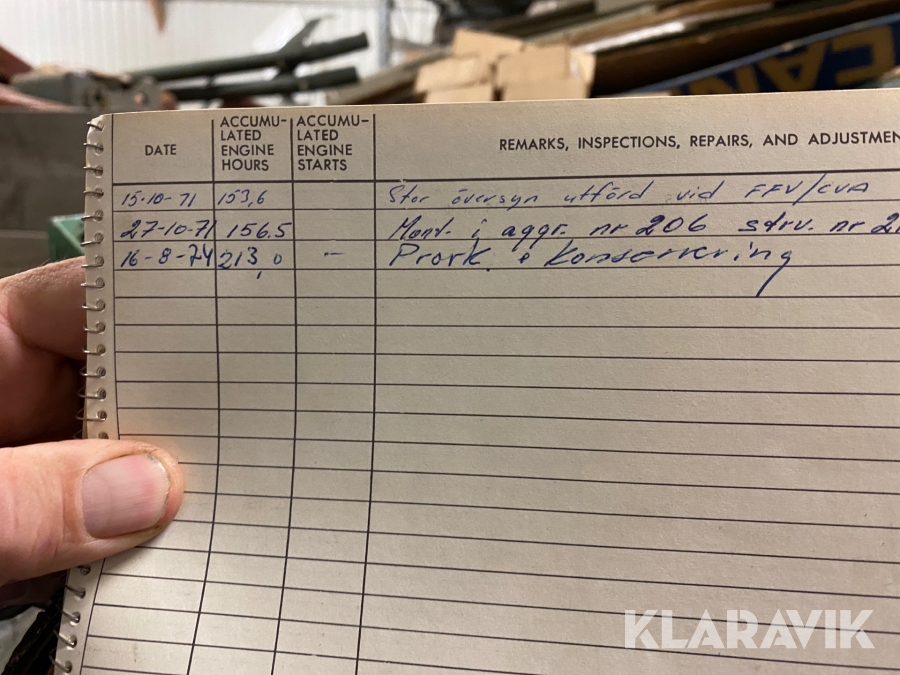 CAN
DATE
ACCUMU-
LATED
ENGINE
HOURS
ACCUMU-
LATED
ENGINE
STARTS
REMARKS, INSPECTIONS, REPAIRS, AND ADJUSTMEN
15-10-71 153,6 Stor översyn utförd vid FFV/CVA
27-10-71 156.5 Mont. i aggr. nr 206 strv. nr 2
16-8-74 213,0 – Prork. o Konservering
KLARAVIK